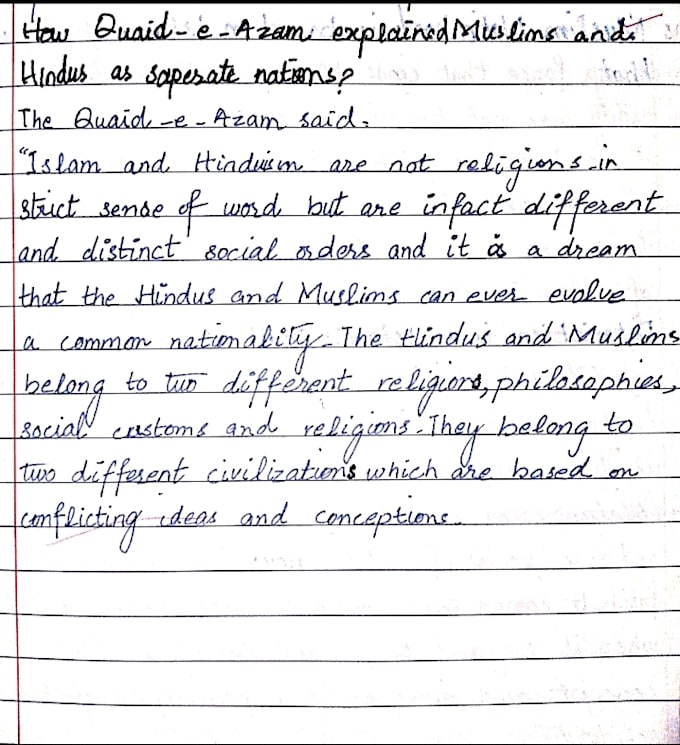 How Quaid-e-Azam explained Muslims and
Hindus as saperate nations?
The Quaid-e-Azam said,
"Islam and Hinduism are not religions in
strict sense of word but are infact different
and distinct social orders and it is a dream
that the Hindus and Muslims can ever evolve
a common nationality. The Hindus and Muslims
belong to two different religions, philosophies,
social customs and religions. They belong to
two different civilizations which are based on
conflicting ideas and conceptions.